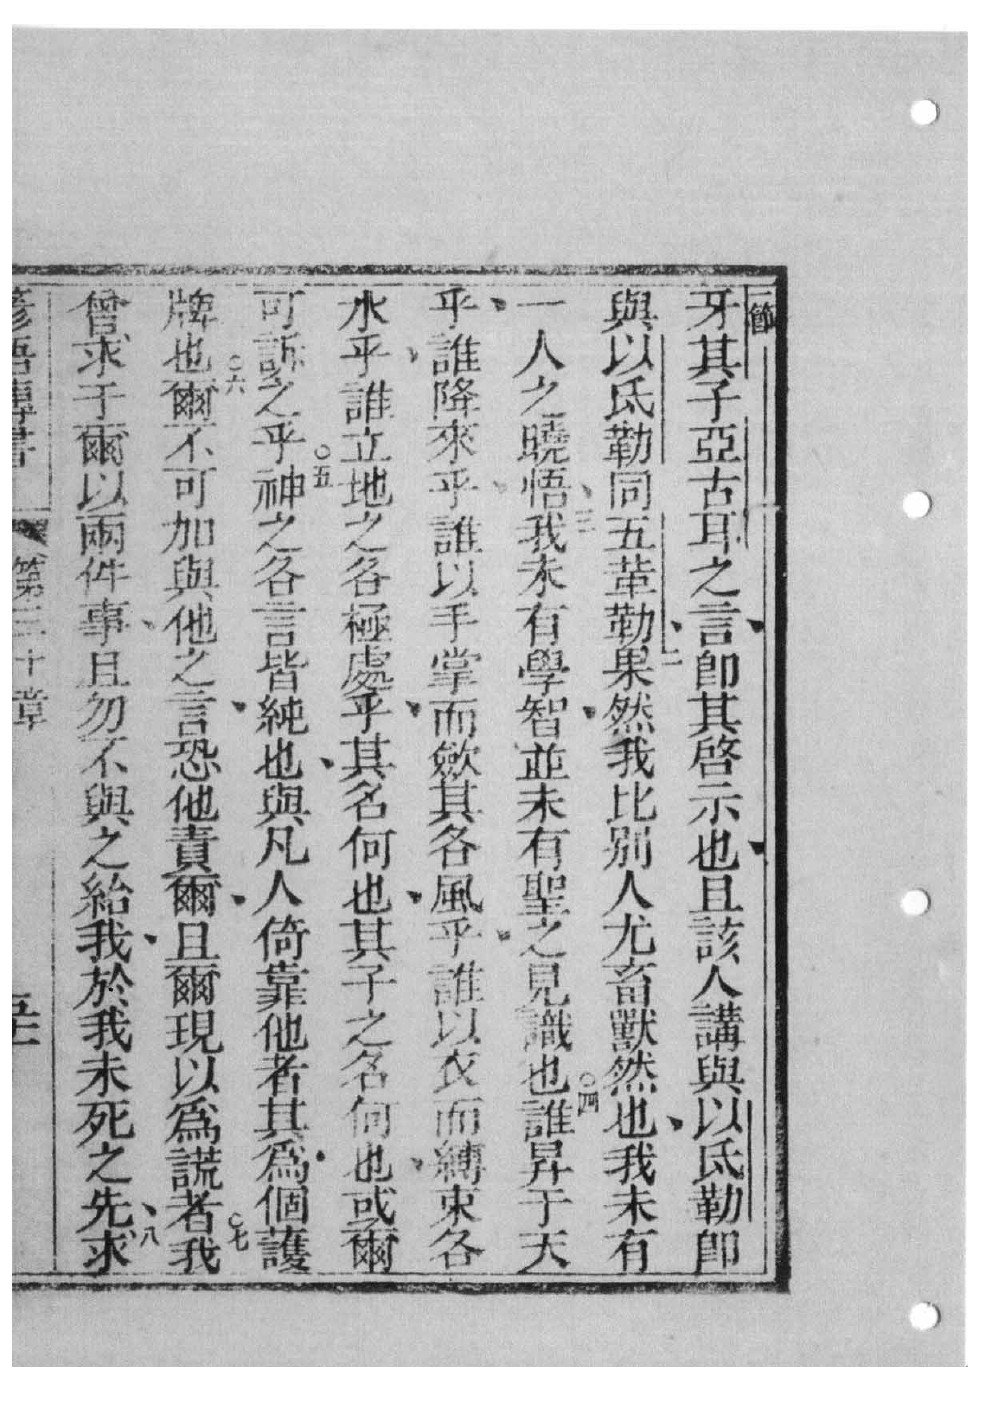 一節
牙其子亞古耳之言卽其啓示也且該人講與以氐勒卽
與以氐勒同五葦勒二果然我比別人尤畜獸然也我未有
一人之曉悟三我未有學智並未有聖之見識也○四誰昇于天
乎誰降來乎誰以手掌而歛其各風乎誰以衣而縛束各
水乎誰立地之各極處乎其名何也其子之名何也或爾
可訴之乎○五神之各言皆純也與凡人倚靠他者其爲個護
牌也○六爾不可加與他之言恐他責爾且爾現以爲謊者○七我
曾求于爾以兩件事且勿不與之給我於我未死之先八求
諺語傳書
第三十章